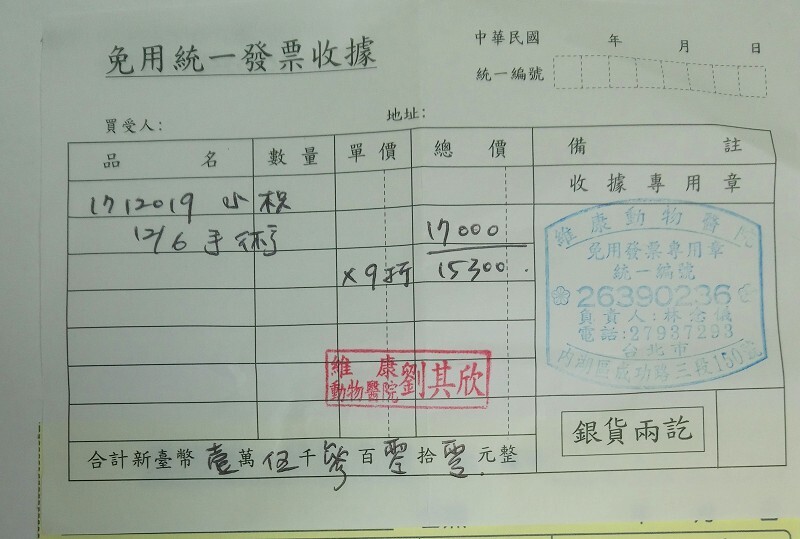 免用統一發票收據
中華民國 年 月 日
統一編號
買受人: 地址:
品名 數量 單價 總價 備註
收據專用章
1712019 小根
12/6 手術 17000
x9折 15300.
維康動物醫院
免用發票專用章
統一編號
26390236
負責人:林念儀
電話:27937293
台北市
內湖區成功路三段150號
維康動物醫院 劉其欣
銀貨兩訖
合計新臺幣 壹萬伍千參百零拾零元整